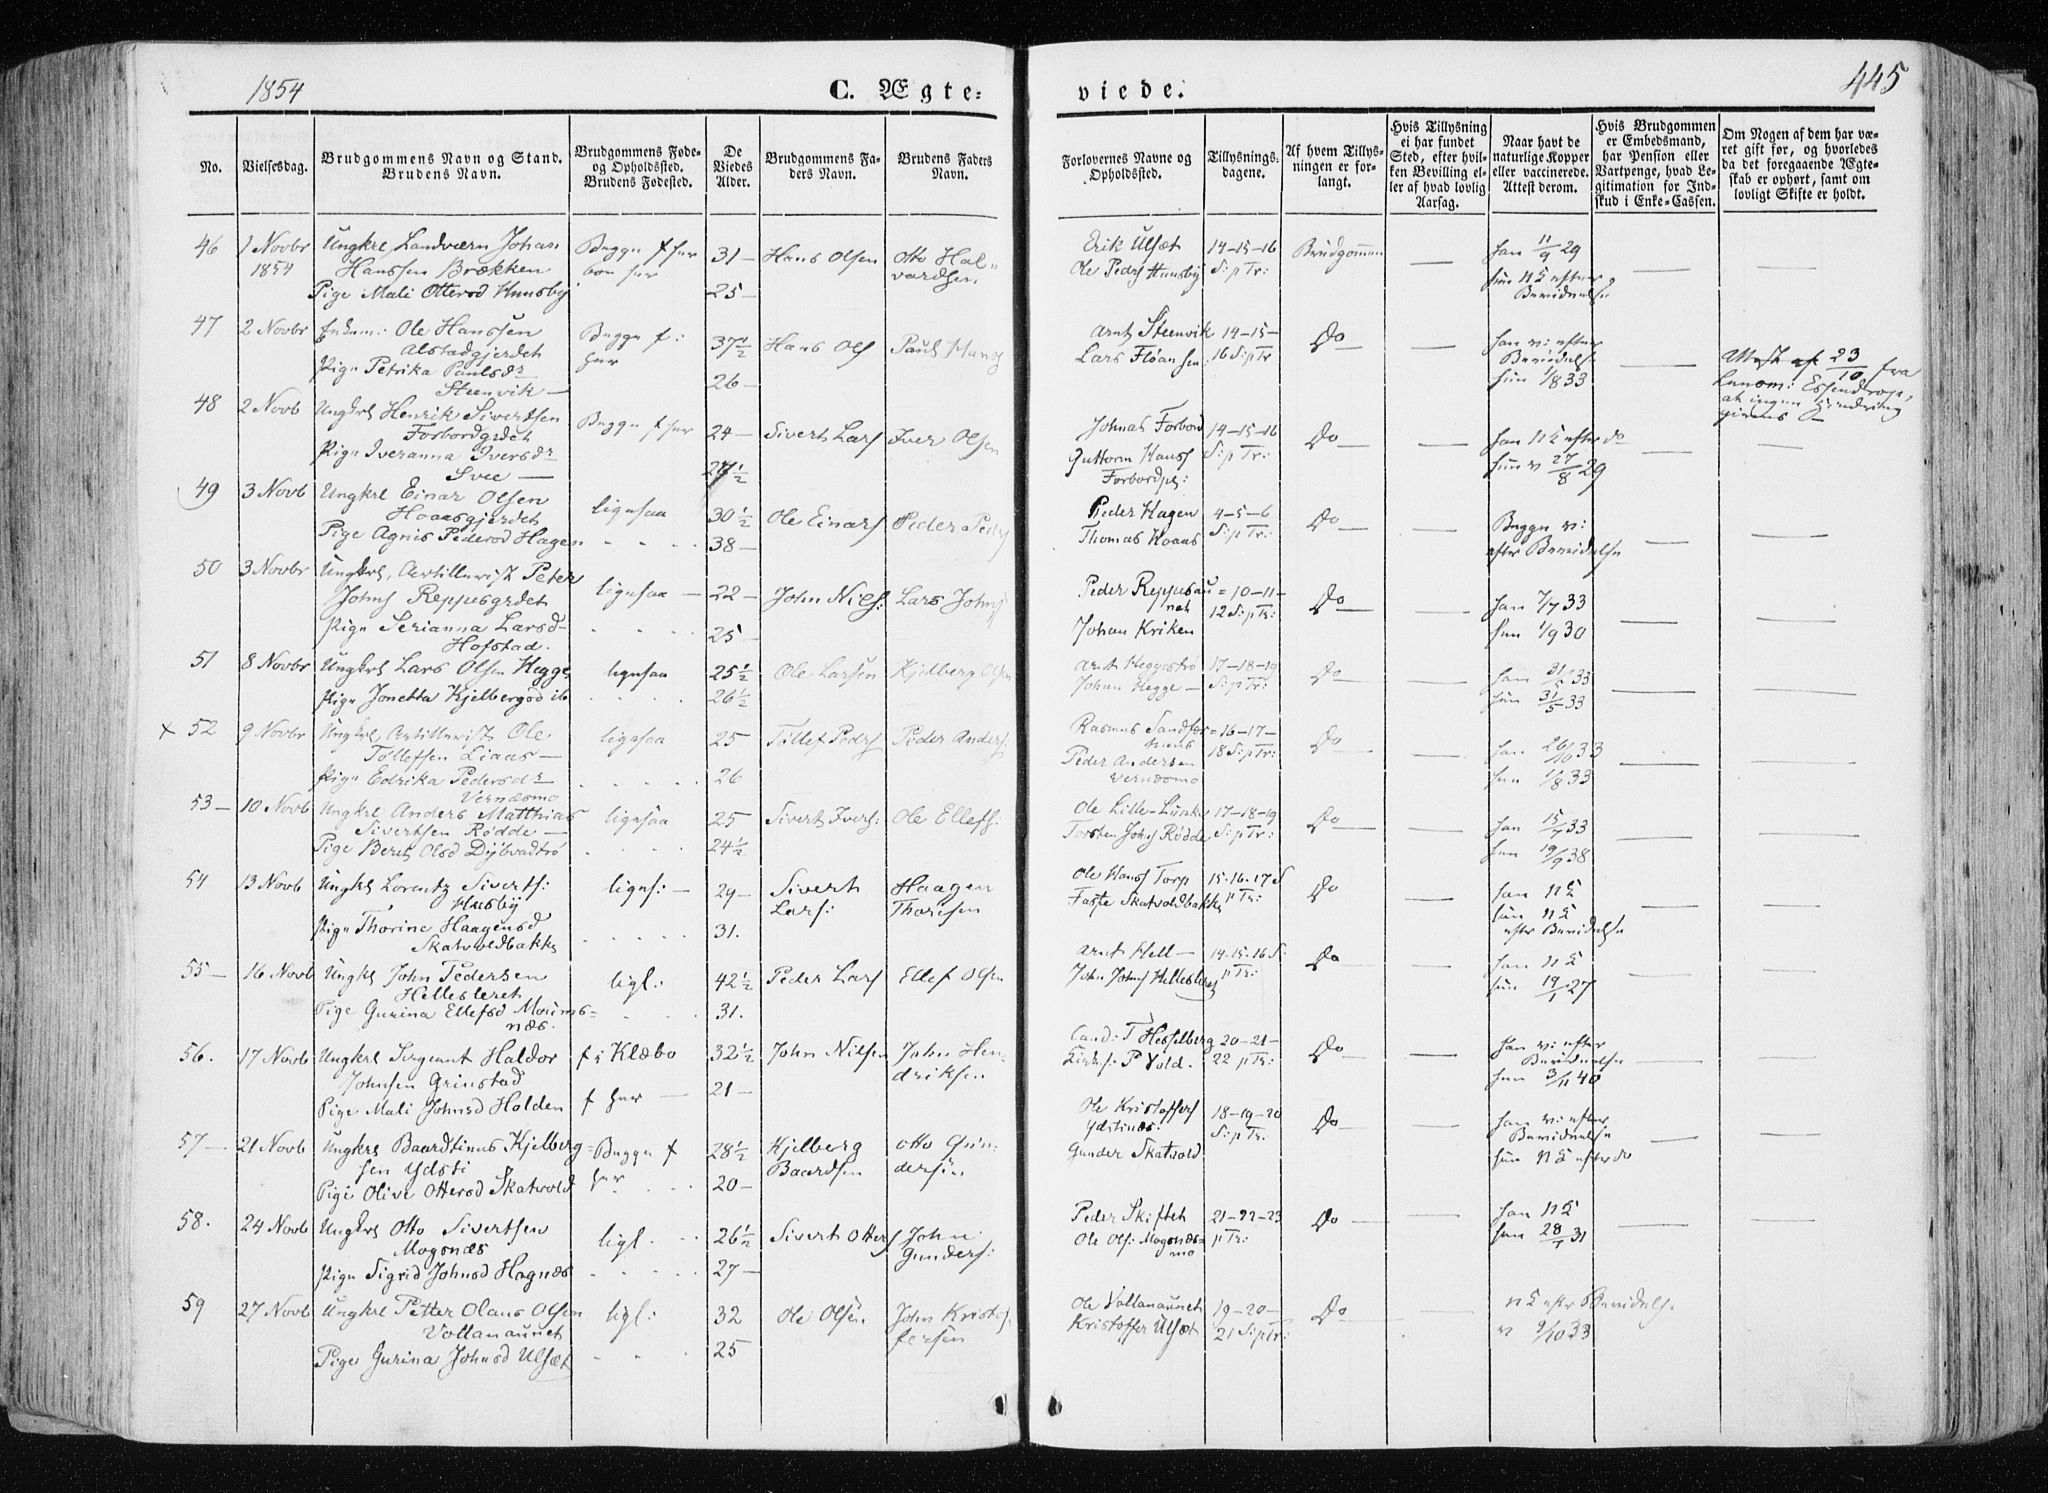 1854
C. Ægte=
viede.
445
No.
Vielsesdag.
Brudgommens Navn og Stand.
Brudens Navn.
Brudgommens Føde=
og Opholdssted.
Brudens Fødested.
De
Viedes
Alder.
Brudgommens Fa=
ders Navn.
Brudens Faders
Navn.
Forlovernes Navne og
Opholdssted.
Tillysnings=
dagene.
Af hvem Tillys=
ningen er for=
langt.
Hvis Tillysning
ei har fundet
Sted, efter hvil=
ken Bevilling el=
ler af hvad lovlig
Aarsag.
Naar havt de
naturlige Kopper
eller vaccinerede.
Attest derom.
Hvis Brudgommen
er Embedsmand,
har Pension eller
Vartpenge, hvad Le=
gitimation for Ind=
skud i Enke=Cassen.
Om Nogen af dem har væ=
ret gift før, og hvorledes
da det foregaaende Ægte=
skab er ophørt, samt om
lovligt Skifte er holdt.
46 1 Novbr Ungkrl Landværn Johan
1854 Hanssen Brækken
Pige Mali Ottersd Hunsby
31 — 25 —
Hans Olsen
Otto Hal=
vardsen.
Erik Ulsæt
Ole Peders Hunsby
14-15-16
S: p Tr:
Brudgommen
han 11/9 29
hun n E efter
Bevidnelse
47 2 Novbr Enkem: Ole Hanssen
Alstadgjerdet
Pige Petrika Paulsdr
Steenvik —
Begge f:
her
37½
26 —
Hans Ols
Paul Hans
Arnt Steenvik
Lars Floan
14-15-
16 S: p Tr
Do
han v: efter
Bevidnelse
hun 1/8 33
Attest af 23/10 fra
at ingen Hindring
48 2 Novb Ungkrl Henrik Sivertsen
Forbordgrdet
Pige Iveranna Iversdr
Svee —
Begge f her
24 —
27½
Sivert Lars
Iver Olsen
Johnas Forbord
Guttorm Hans
Forbordpl:
14-15-16
S: p Tr:
Do
han n E efter do
hun v 27/8 29
49 3 Novb Ungkrl Einar Olsen
Hoaasgjerdet
Pige Agnis Pedersd Hagen
ligesaa
30½
38 —
Ole Einars
Peder Peders
Peder Hagen
Thomas Hoaas
4-5-6
S: p Tr:
Do
Begge v:
efter Bevidnelse
50 3 Novbr Ungkrl, Artillerist Peter
Johns Reppesgrdet
Pige Serianna Larsd
Hofstad.
ligesaa —
22 —
25 —
John Niels:
Lars Johns
Peder Reppesau=
net
Johan Kriken
10-11-
12 S: p Tr:
Do
han 7/7 33
hun 1/9 30
51 8 Novbr Ungkrl Lars Olsen Hegge
Pige Jonetta Kjelbergsd ib
ligesaa
25½
26½
Ole Larsen
Kjelberg Olsen
Arnt Heggestrø
Johan Hegge —
17-18-19
S: p Tr:
Do
han 31/5 33
hun 31/5 33
x 52 9 Novbr Ungkrl, Artillerist Ole
Tøllefsen Liaas —
Pige Edrika Pedersdr
Vernæsmo
ligesaa
25
26
Tøllef Peders
Peder Anders:
Rasmus Sandfær=
hus
Peder Andersen
Vernæsmo
16-17-
18 S: p Tr:
Do
han 26/10 33
hun 1/8 33
53 — 10 Novb Ungkrl Anders Matthias
Sivertsen Rødde —
Pige Beret Olsd Dÿbvadtrø
ligesaa
25
24½
Sivert Ivers:
Ole Ellefs:
Ole Lille-Lunke
Torsten Johns Rødde
17-18-19
S: p Tr:
Do
han 15/7 33
hun 19/9 38
54 13 Novb Ungkrl Lorentz Siverts:
Husby
Pige Thorine Haagensd
Skatvoldbakke
liges: —
29 —
31.
Sivert
Lars:
Haagen
Thoresen
Ole Hans Torp
Faste Skatvoldbakke
15-16-17 S
p Tr:
Do
han n E
hun n E
efter Bevidnelse
55 — 16 Novb Ungkrl John Pedersen
Hellesleret
Pige Gurina Ellefsd Mæums=
næs.
ligl:
42½
31.
Peder Lars
Ellef Olsen
Arnt Hell —
John Johns Hellesleret
14-15-16 S:
p Tr:
Do
han n E
hun 19/1 27
56. 17 Novb Ungkrl Sergeant Haldor
Johnsen Grinstad
Pige Mali Johnsd Holden
f i Klæbo
f her —
32½
21 —
John Nilsen
John Hen=
driksen
Cand: T Hesselberg
Kirks: P Vold.
20-21-
22 p Tr:
Do
han v: efter
Bevidnelse
hun 3/11 40
57 — 21 Novb Ungkrl Baardtinus Kjelberg=
sen Ydsti
Pige Olive Ottersd Skatvold
Begge f
her
28½
20 —
Kjelberg
Baardsen
Otto Gun=
dersen.
Ole Kristoffers
Ydstines:
Gunder Skatvold
18-19-20
S: p Tr:
Do
han v: efter
Bevidnelse
hun n E efter do
58. 24 Novb Ungkrl Otto Sivertsen
Mogsnæs
Pige Sigrid Johnsd Hognæs
ligl.
26½
27 —
Sivert Otters
John
Gunders:
Peder Skiftet
Ole Ols: Mogsnæs=
mo
21-22-23
p Tr:
Do
han n E
hun 28/7 31
59 27 Novb Ungkrl Petter Olaus Olsen
Vollanaunet
Pige Gurina Johnsd Ulsæt
ligl:
32
25
Ole Olsen.
John Kristof=
fersen
Ole Vollanaunet
Kristoffer Ulsæt
19-20-
21 S: p Tr:
Do
n E efter Bevidnelse
v 9/10 33